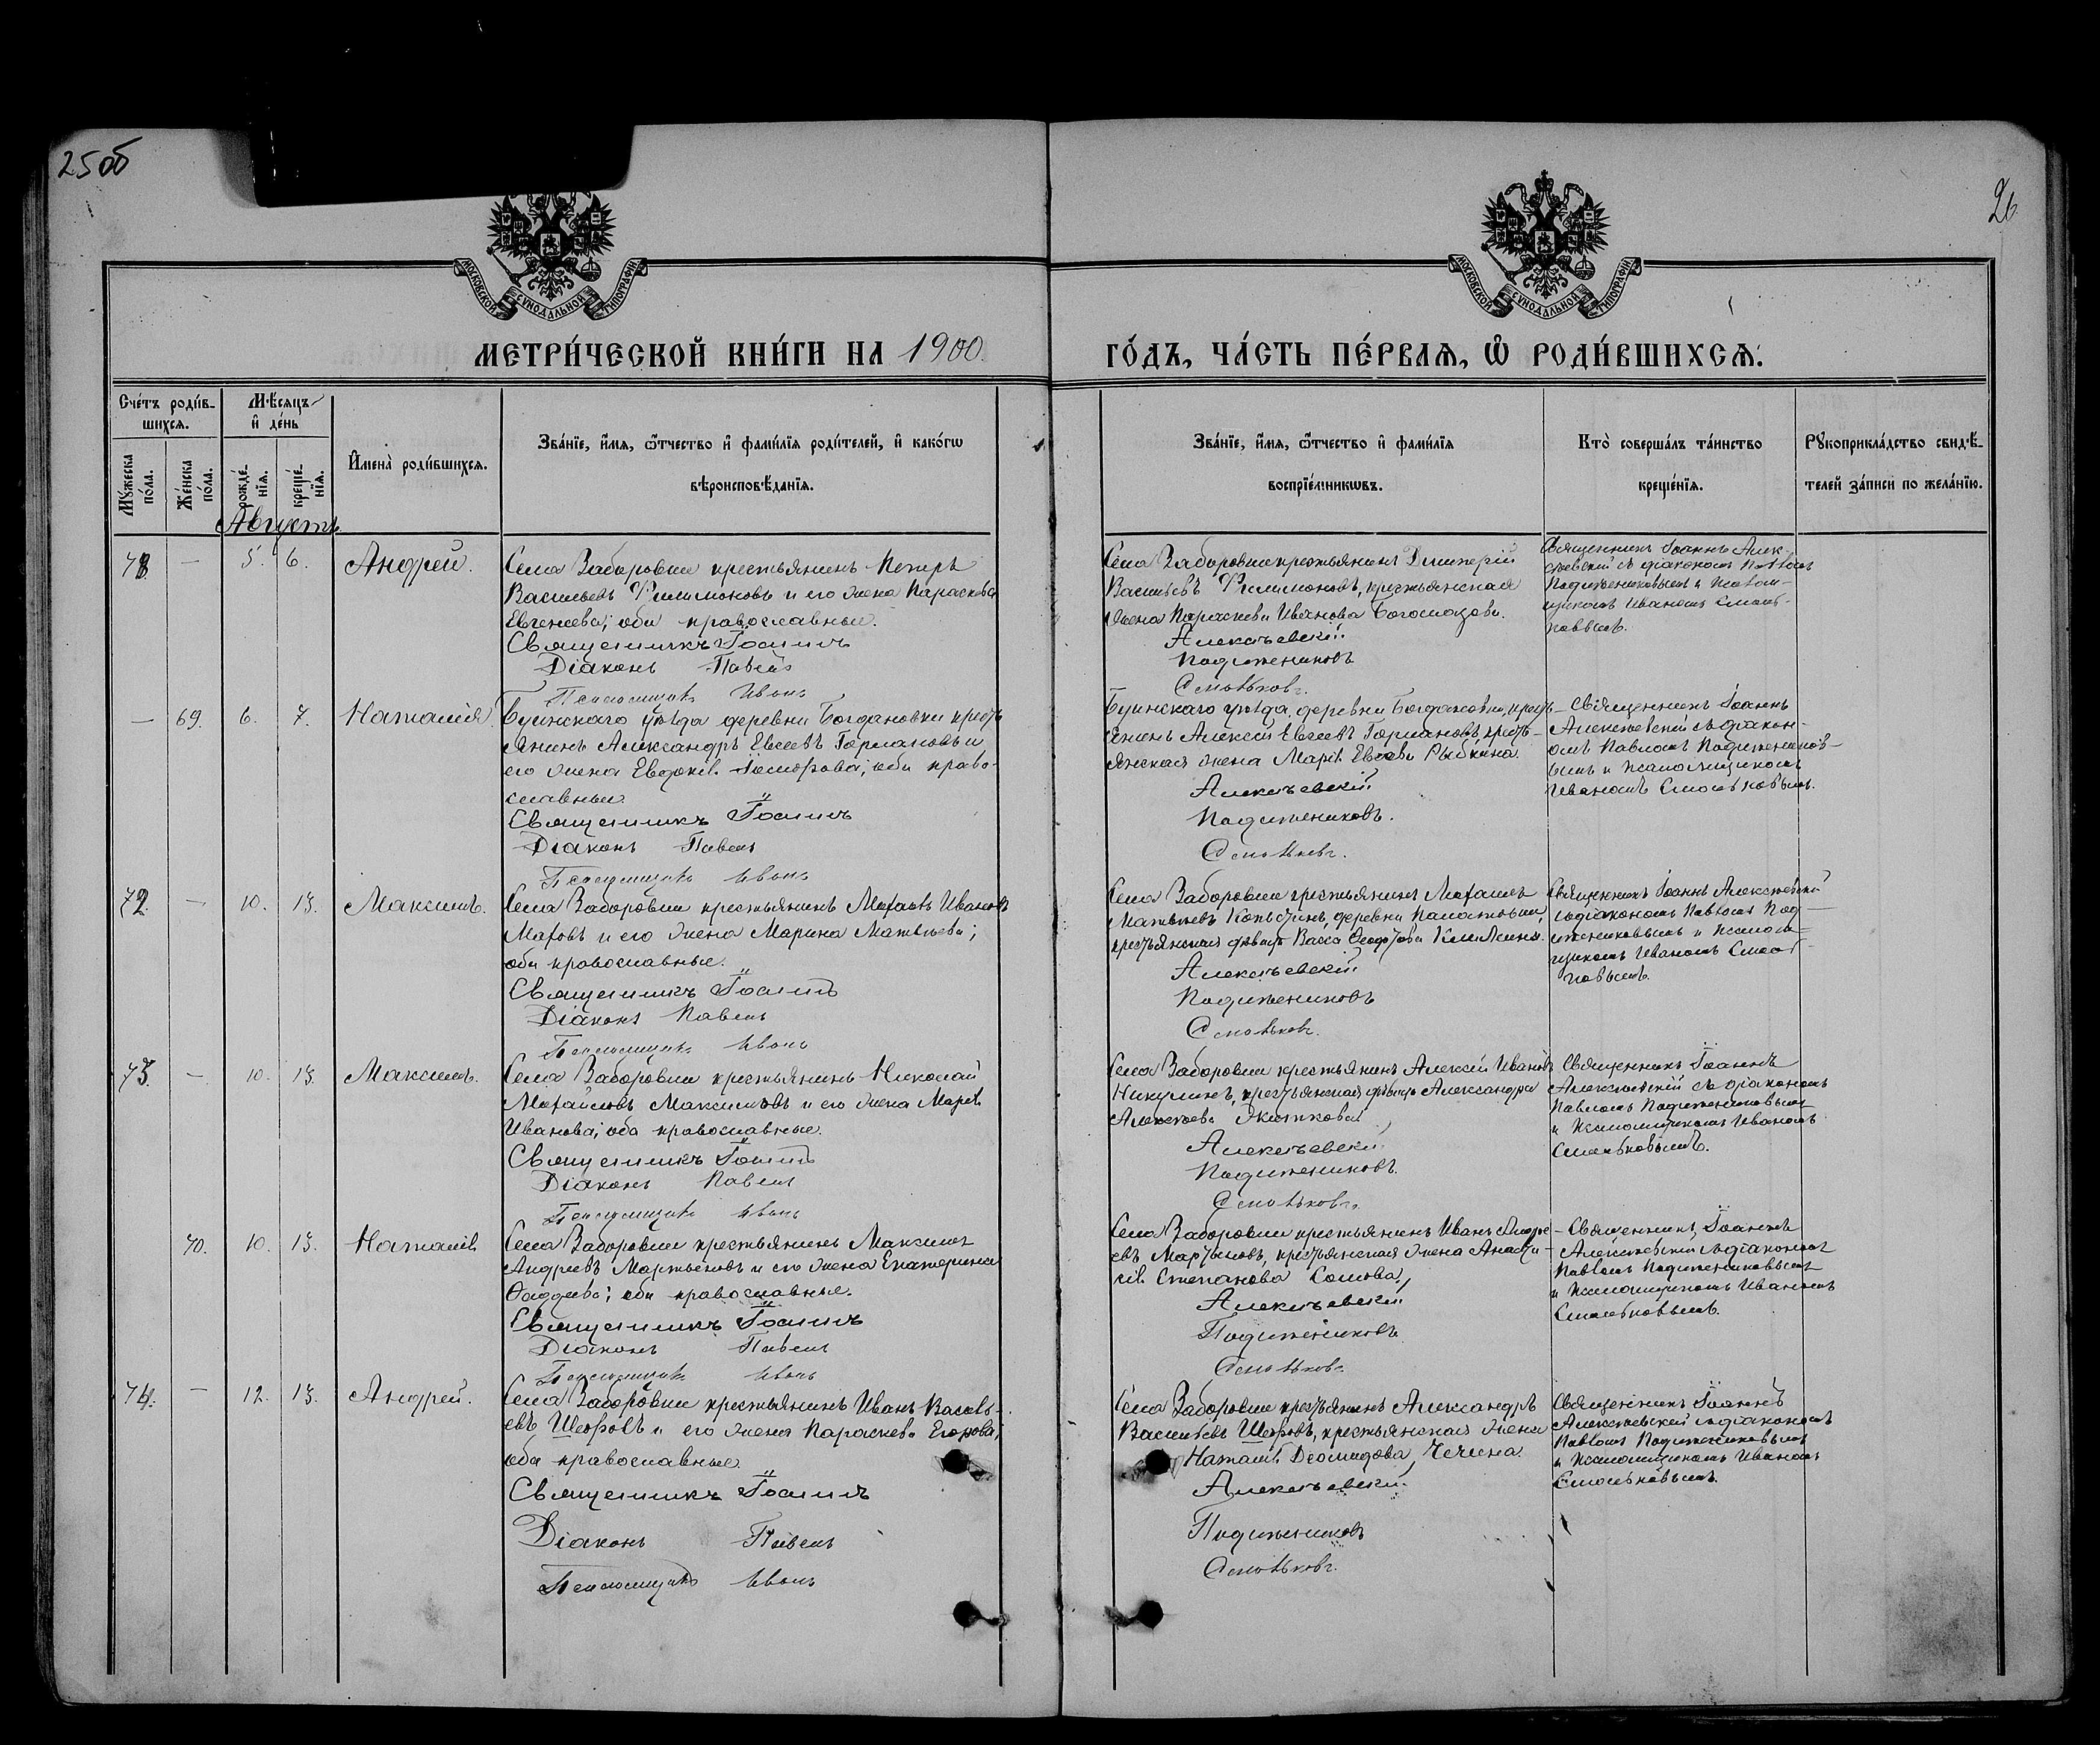 25об
26
МОСКОВСКОЙ СѴНОДАЛЬНОЙ ТИПОГРАФІИ
МОСКОВСКОЙ СѴНОДАЛЬНОЙ ТИПОГРАФІИ
МЕТРИ́ЧЕСКОЙ КНИ́ГИ НА 1900.
ГО́ДЪ, ЧА́СТЬ ПЕ́РВАЯ, Ѽ РОДИ́ВШИХСЯ.
Сче́тъ роди́в-
шихся.
Мꙋ́жеска по́ла.
Же́нска по́ла.
Мѣ́сяцъ
и҆ де́нь
рожде́-нїя.
креще́-нїя.
И҆мена̀ роди́вшихся.
Зва́нїе, и҆́мя, ѻ҆́тчество и҆ фами́лїя роди́телей, и҆ како́гѡ
вѣроисповѣ́данїя.
Зва́нїе, и҆́мя, ѻ҆́тчество и҆ фами́лїя
воспрїе́мникѡвъ.
Кто̀ соверша́лъ та́инство
креще́нїя.
Рꙋкоприкла́дство свидѣ́-
телей за́писи по жела́нїю.
Августъ
— 5. 6. Андрей.
Села Заборовки крестьянинъ Петръ
Васильевъ Филимоновъ и его жена Параскева
Евгенiева; оба православные.
Священникъ Іоаннъ
Діаконъ Павелъ
Псаломщикъ Иванъ
Села Заборовки крестьянинъ Димитрій
Васильевъ Филимоновъ, крестьянская
жена Параскева Иванова
Алексѣевскій
Подиженниковъ
Смольковъ.
Священникъ Іоаннъ Алек-
сѣевскій съ діакономъ Павломъ
Подиженниковымъ и псалом-
щикомъ Иваномъ Смоль-
ковымъ.
— 69. 6. 7. Наталія
Буинскаго уѣзда деревни Богдановки кресть-
янинъ Александръ Евсеевъ Гормановъ и
его жена Евдокія; оба право-
славные.
Священникъ Іоаннъ
Діаконъ Павелъ
Псаломщикъ Иванъ
Буинскаго уѣзда, деревни Богдановки, кресть-
янинъ Алексѣй Евсеевъ Гормановъ, кресть-
янская жена Марія Евсеева Рыбкина.
Алексѣевскій
Подиженниковъ.
Смольковъ.
Священникъ Іоаннъ
Алексѣевскій съ діакон-
омъ Павломъ Подиженников-
ымъ и псаломщикомъ
Иваномъ Смольковымъ.
72. — 10. 13. Максимъ.
Села Заборовки крестьянинъ Михаилъ Ивановъ
и его жена Марина Матвѣева;
оба православные.
Священникъ Іоаннъ
Діаконъ Павелъ
Псаломщикъ Иванъ
Села Заборовки крестьянинъ Михаилъ
Матвѣевъ, деревни
крестьянская дѣвица Васса
Алексѣевскій
Подиженниковъ
Смольковъ.
Священникъ Іоаннъ Алексѣевскій
съ діакономъ Павломъ Под-
иженниковымъ и псалом-
щикомъ Иваномъ Смоль-
ковымъ.
73. — 10. 13. Максимъ.
Села Заборовки крестьянинъ Николай
Михайловъ Максимовъ и его жена Марія
Иванова; оба православные.
Священникъ Іоаннъ
Діаконъ Павелъ
Псаломщикъ Иванъ
Села Заборовки крестьянинъ Алексѣй Ивановъ
Никулинъ, крестьянская дѣвица Александра
Алексѣева
Алексѣевскій
Подиженниковъ.
Смольковъ.
Священникъ Іоаннъ
Алексѣевскій съ діакономъ
Павломъ Подиженниковымъ
и псаломщикомъ Иваномъ
Смольковымъ.
70. 10. 13. Наталія
Села Заборовки крестьянинъ Максимъ
Андреевъ Мартьяновъ и его жена Екатерина
Фаддѣева; оба православные.
Священникъ Іоаннъ
Діаконъ Павелъ
Псаломщикъ Иванъ
Села Заборовки крестьянинъ Иванъ Андре-
евъ Мартьяновъ, крестьянская жена Анаста-
сія Степанова Сомова,
Алексѣевскій
Подиженниковъ
Смольковъ
Священникъ Іоаннъ
Алексѣевскій съ діакономъ
Павломъ Подиженниковымъ
и псаломщикомъ Иваномъ
Смольковымъ.
74. — 12. 13. Андрей.
Села Заборовки крестьянинъ Иванъ Василь-
евъ и его жена Параскева Егорова;
оба православные.
Священникъ Іоаннъ
Діаконъ Павелъ
Псаломщикъ Иванъ
Села Заборовки крестьянинъ Александръ
Васильевъ, крестьянская жена
Наталія Діомидова
Алексѣевскій
Подиженниковъ
Смольковъ.
Священникъ Іоаннъ
Алексѣевскій съ діакономъ
Павломъ Подиженниковымъ
и псаломщикомъ Иваномъ
Смольковымъ.